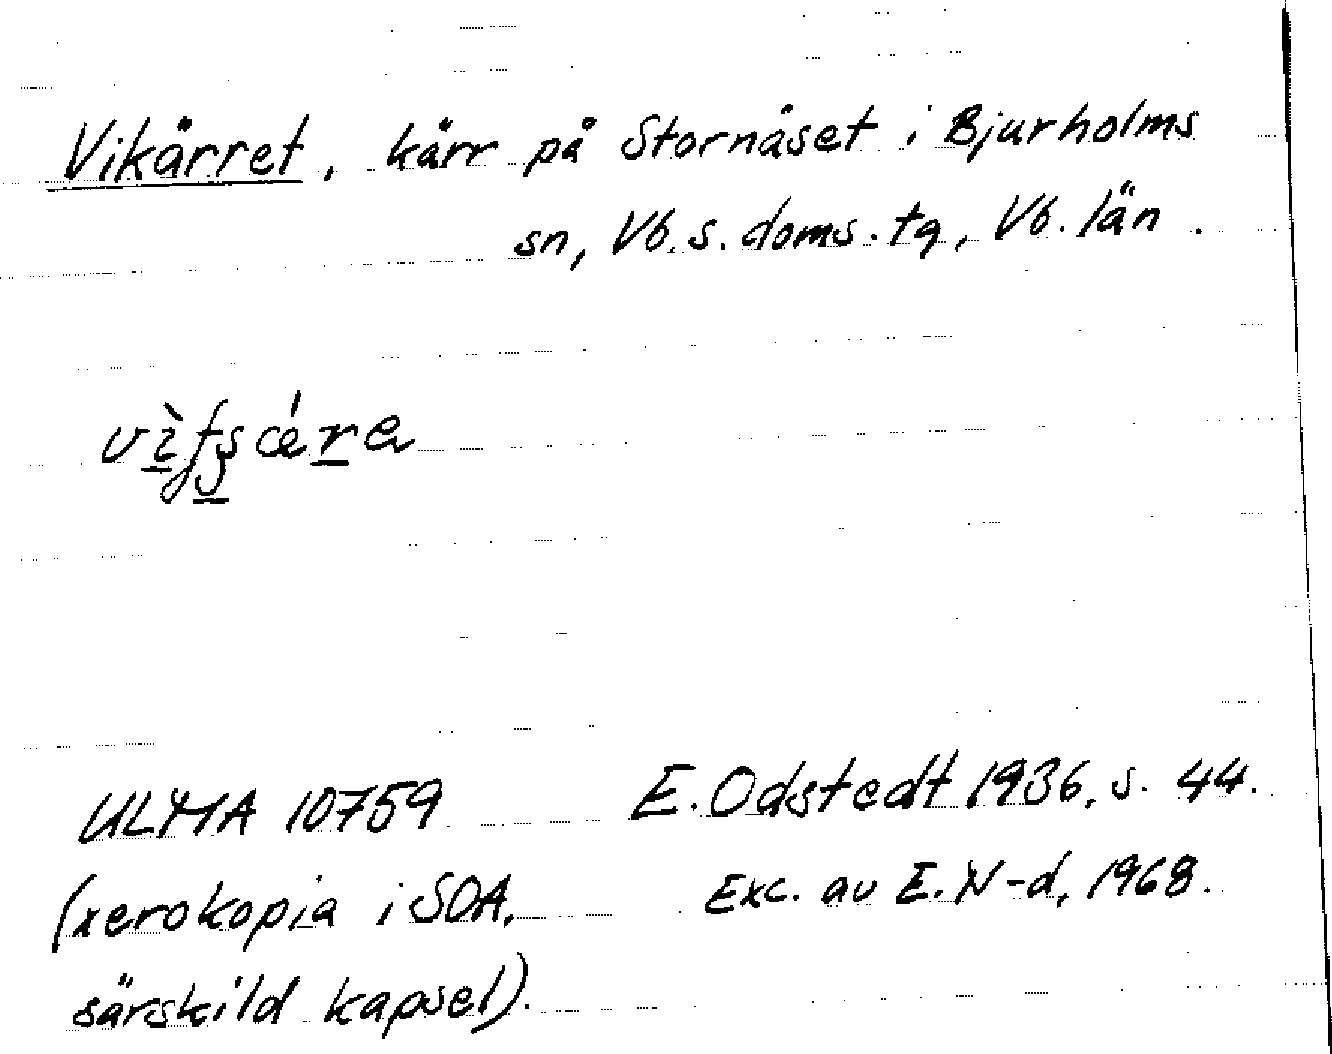 Vikärret, kärr på Stornäset i Bjurholms
sn, Vb. s. doms. tg, Vb. län.
ULMA 10759 E. Odstedt 1936, s. 44.
(xerokopia i SOA, Exc. av E. N-d, 1968.
särskild kapsel).